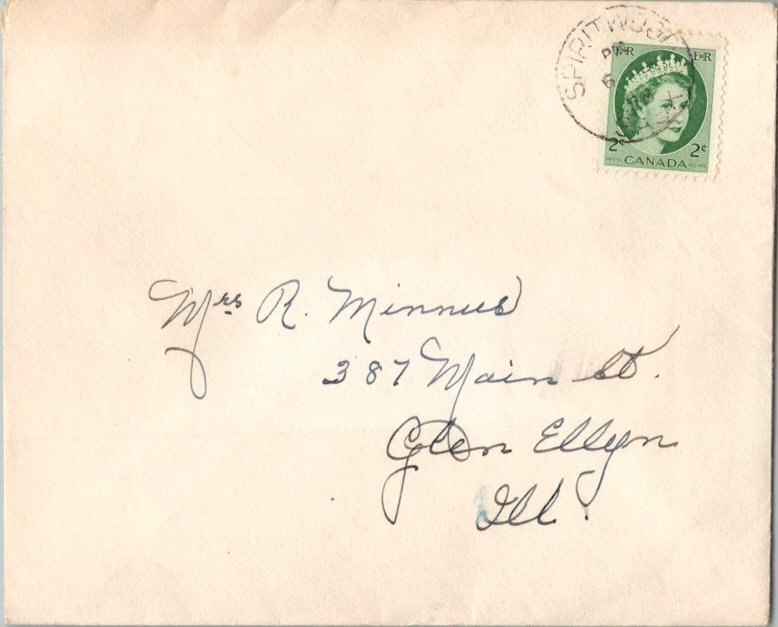 SPIRITWOOD
PM
6
E II R E II R
2¢ 2¢
POSTES CANADA POSTAGE
Mrs R. Minnus
387 Main St.
Glen Ellyn
Ill.